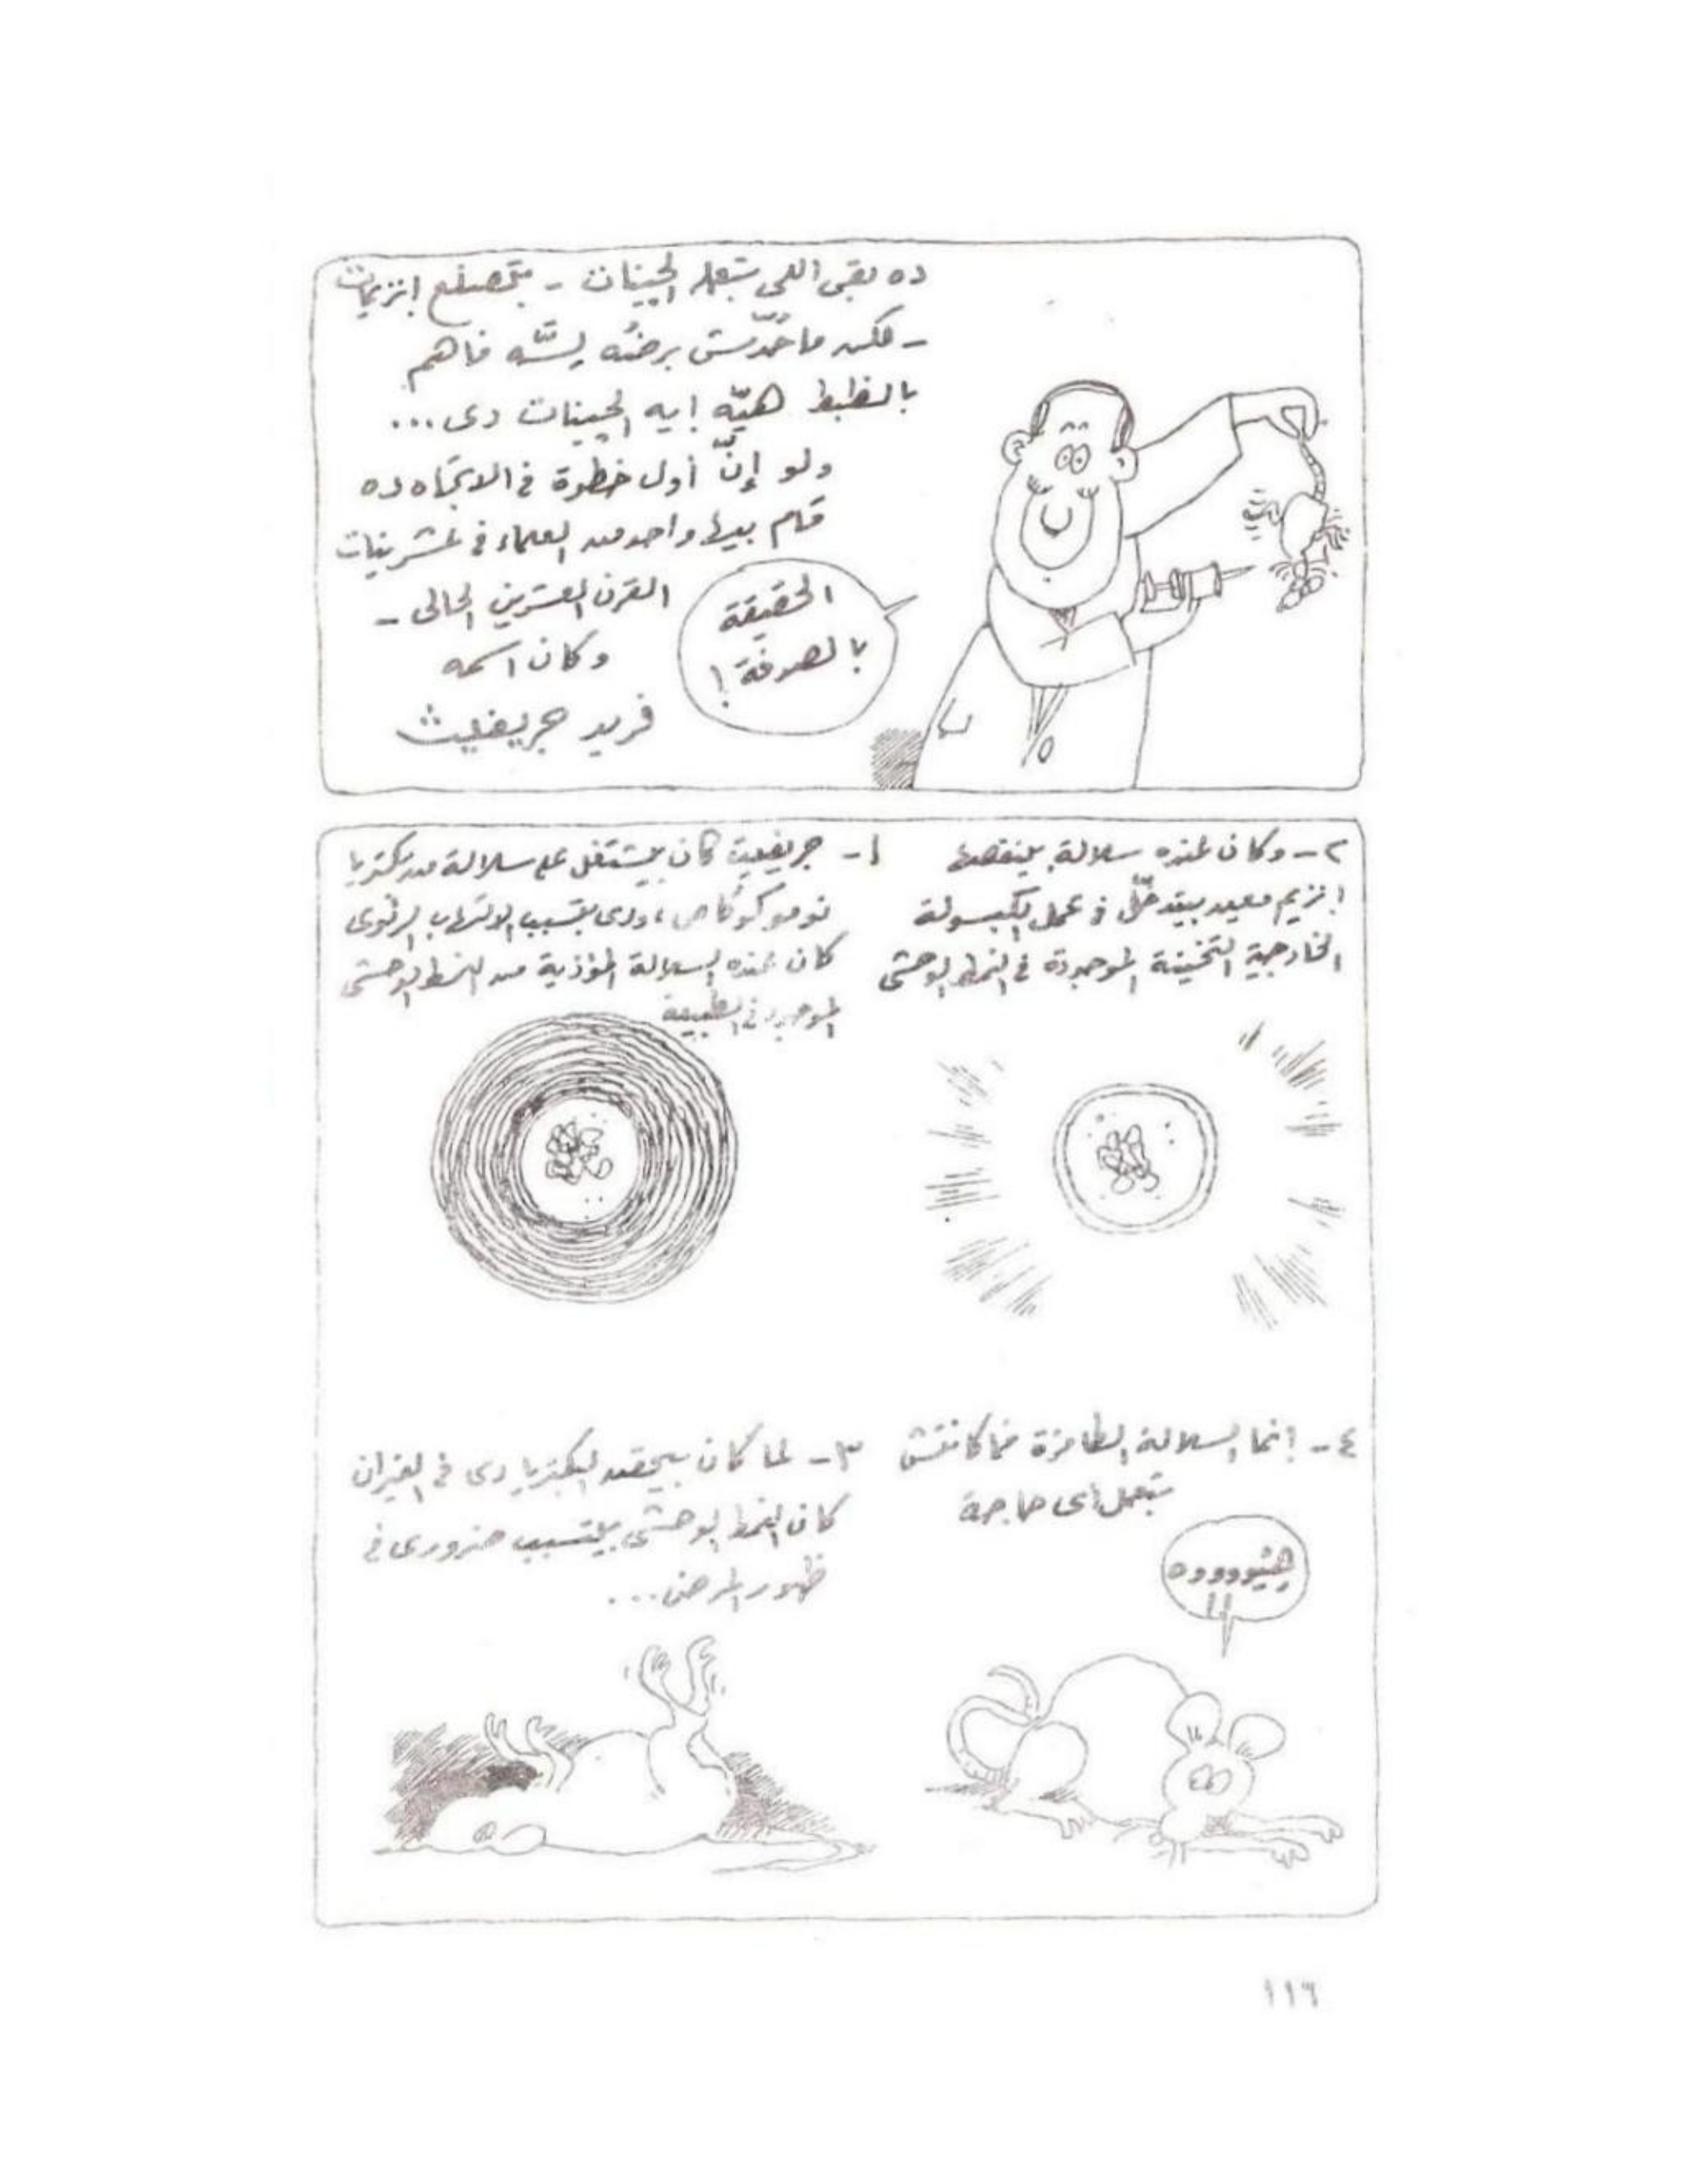 ده بقى اللى بتعمله الجينات - بتصنع إنزيمات
- لكن ماحدّش برضُه لِسَّه فاهم
بالظبط هيّه إيه الجينات دى...
ولو إنّ أول خطوة فى الاتجاه ده
قام بيها واحد من العلماء فى عشرينات
القرن العشرين الحالى -
وكان اسمه
فريد جريفيث
الحقيقة
بالصدفة!
١- جريفيث كان بيشتغل على سلالة من بكتريا
نوموكوكاص، ودى بتسبب الالتهاب الرئوى
كان عنده السلالة المؤذية من النمط الوحشى
الموجود فى الطبيعة
٢- وكان عنده سلالة بينقصها
إنزيم معين بيتدخّل فى عمل الكبسولة
الخارجية التخينة الموجودة فى النمط الوحشى
٣- لما كان بيحقن البكتريا دى فى الفيران
كان النمط الوحشى بيتسبب ضرورى فى
ظهور المرض...
٤- إنما السلالة الطافرة فما كانتش
بتعمل أى حاجة
هِئيووووه
!!
١١٦